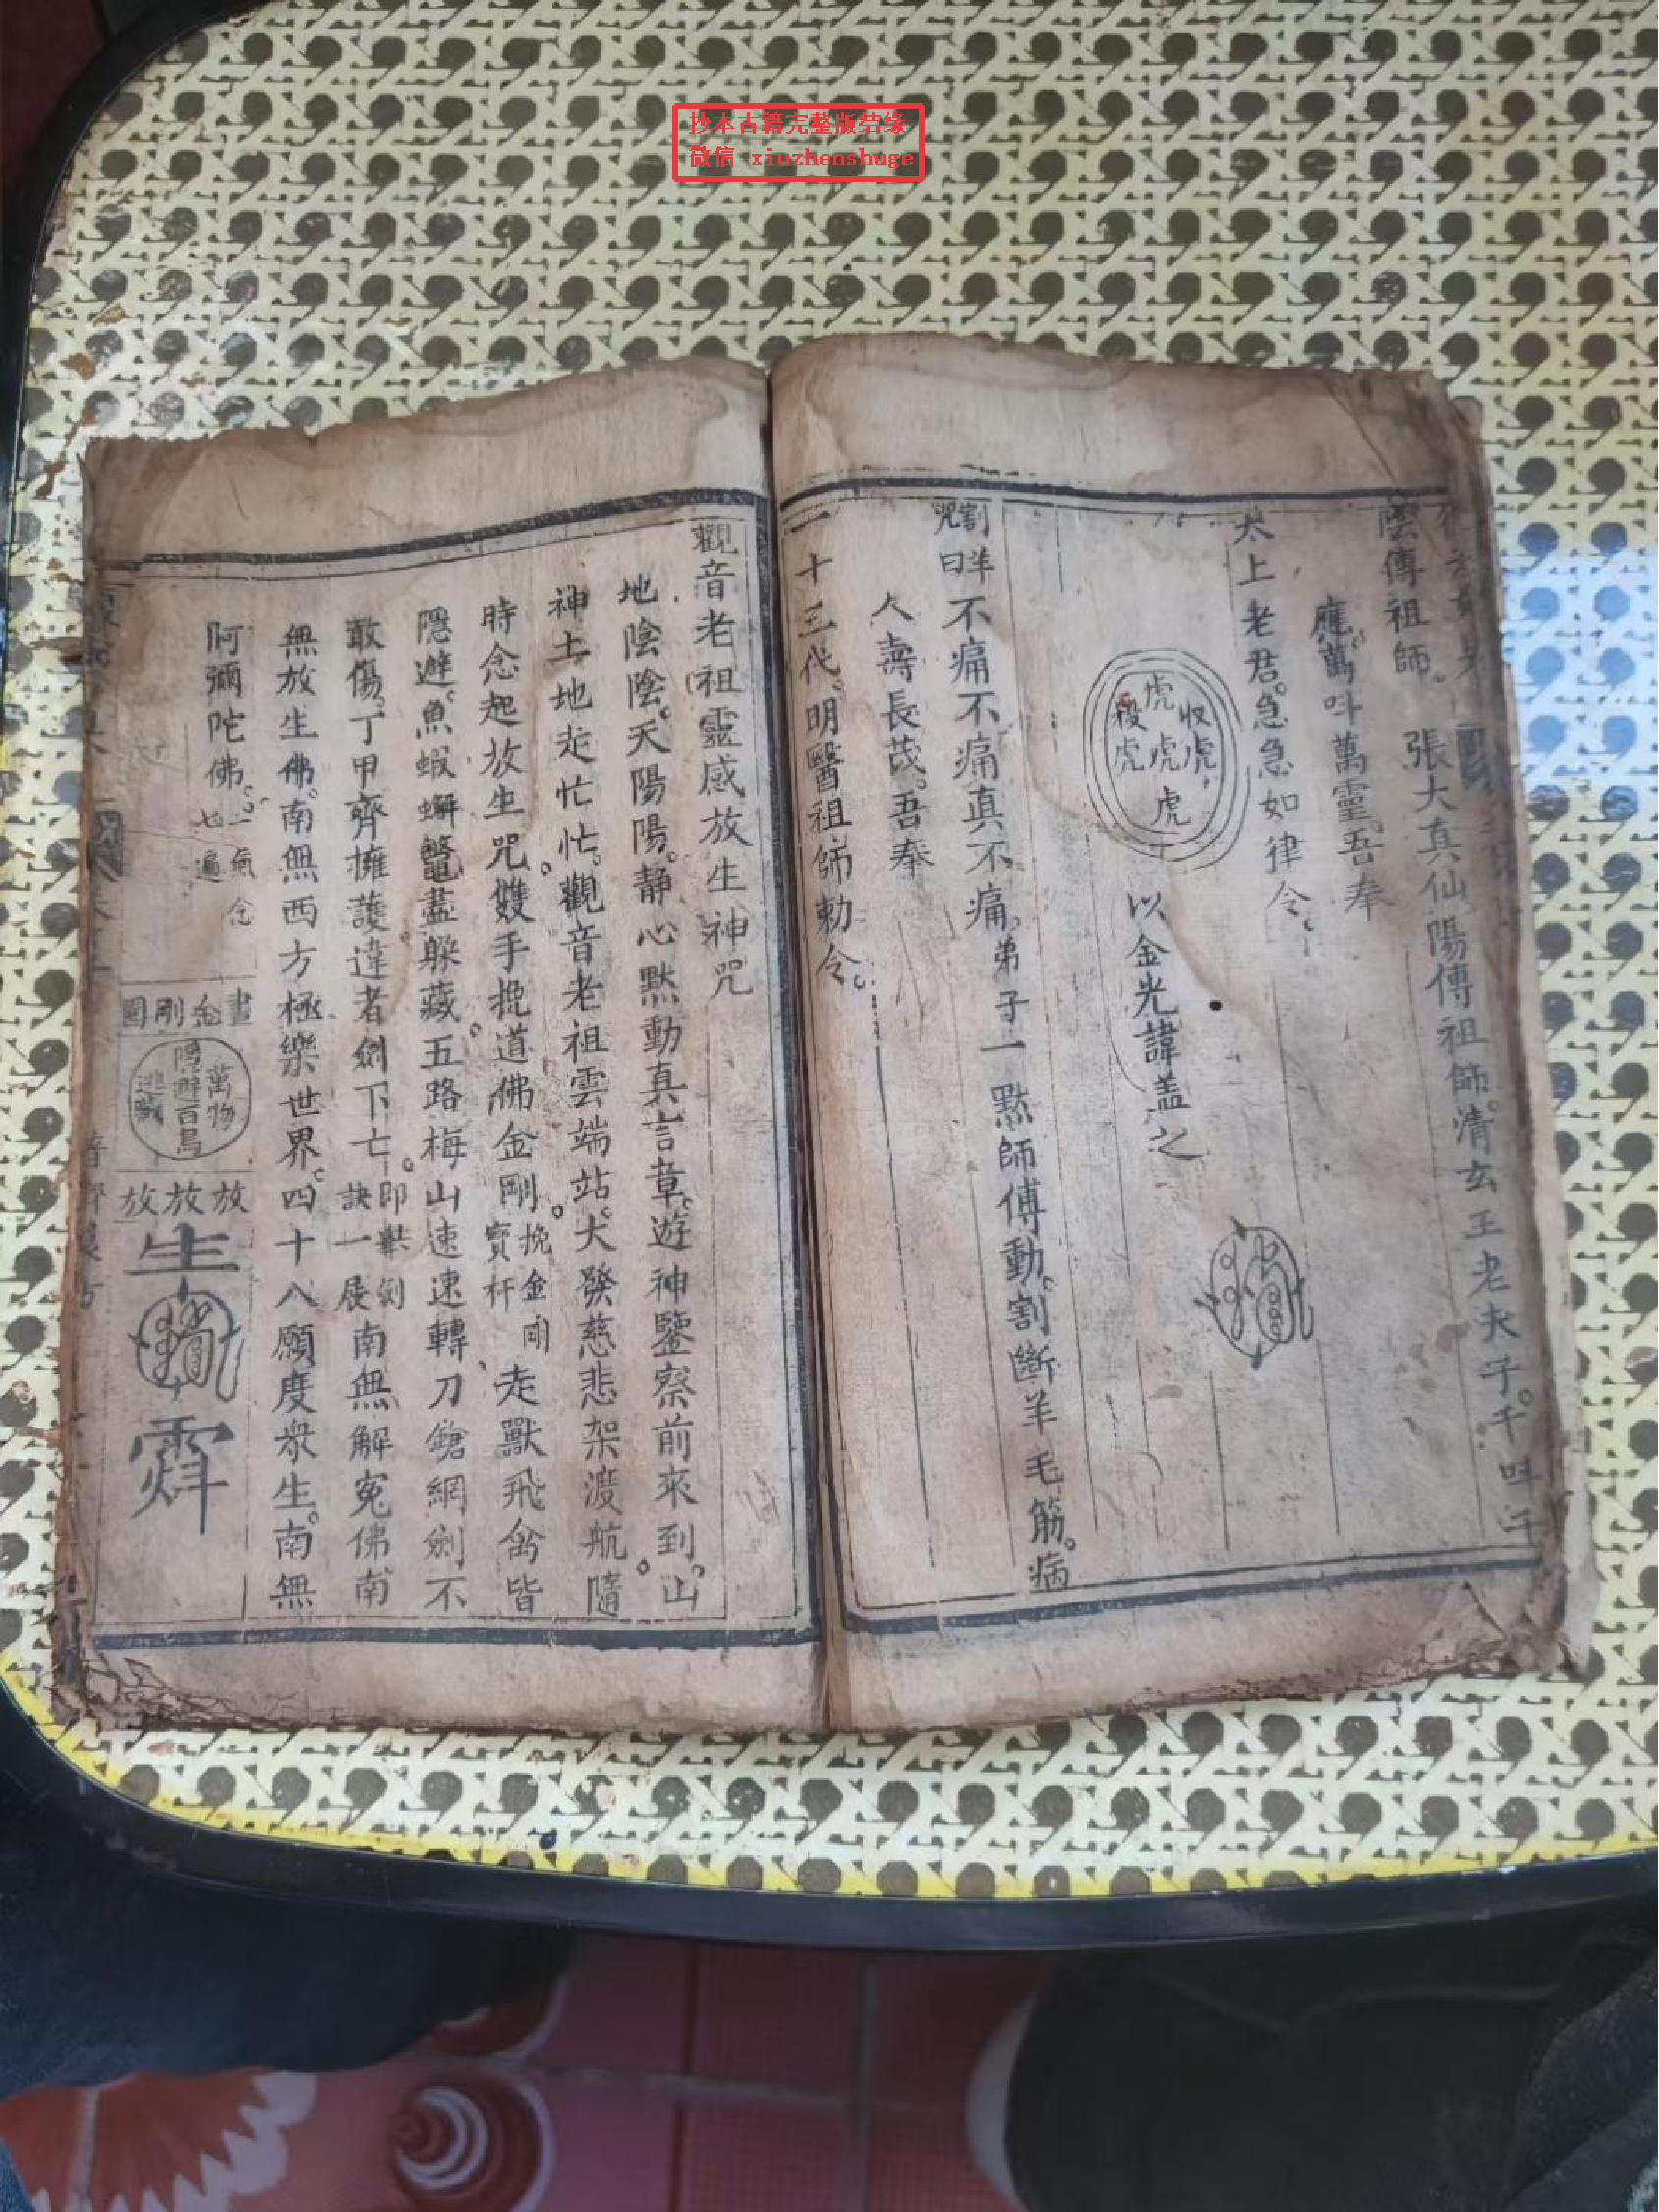 抄本古籍完整版结缘
微信 xiuzhenshuge
陰傳祖師。張大真仙陽傳祖師。清玄王老夫子。千呌千
應。萬呌萬靈。吾奉
太上老君。急急如律令。
收虎
虎虎虎
殺虎
以金光諱盖之
割羊
咒曰
不痛不痛真不痛。弟子一點師傅動。割斷羊毛筋。病
人壽長茂。吾奉
一十三代。明醫祖師勅令。
觀音老祖靈感放生神咒
地陰陰。天陽陽。静心默動真言章。遊神鑒察前來到。山
神土地走忙忙。觀音老祖雲端站。大發慈悲架渡航。隨
時念起放生咒。雙手挽道佛金剛。挽金剛
寶杆
走獸飛禽皆
隱避。魚蝦蠏鼈盡躲藏。五路梅山速速轉。刀鎗網剑不
敢傷。丁甲齊擁護。違者劍下亡。即举剑
訣一展
南無解冤佛南
無放生佛。南無西方極樂世界。四十八願度眾生。南無
阿彌陀佛。一氣念
七遍
畫金剛圖
萬物
隱避百鳥
逃藏
放放放
生
霹